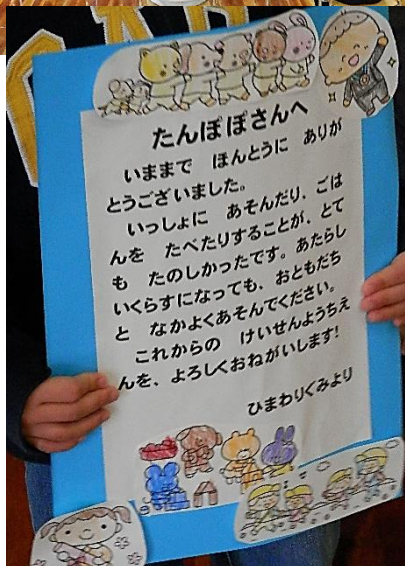 たんぽぽさんへ
いままで ほんとうに ありが
とうございました。
いっしょに あそんだり、ごは
んを たべたりすることが、とて
も たのしかったです。あたらし
いくらすになっても、おともだち
と なかよくあそんでください。
これからの けいせんようちえ
んを、よろしくおねがいします!
ひまわりぐみより